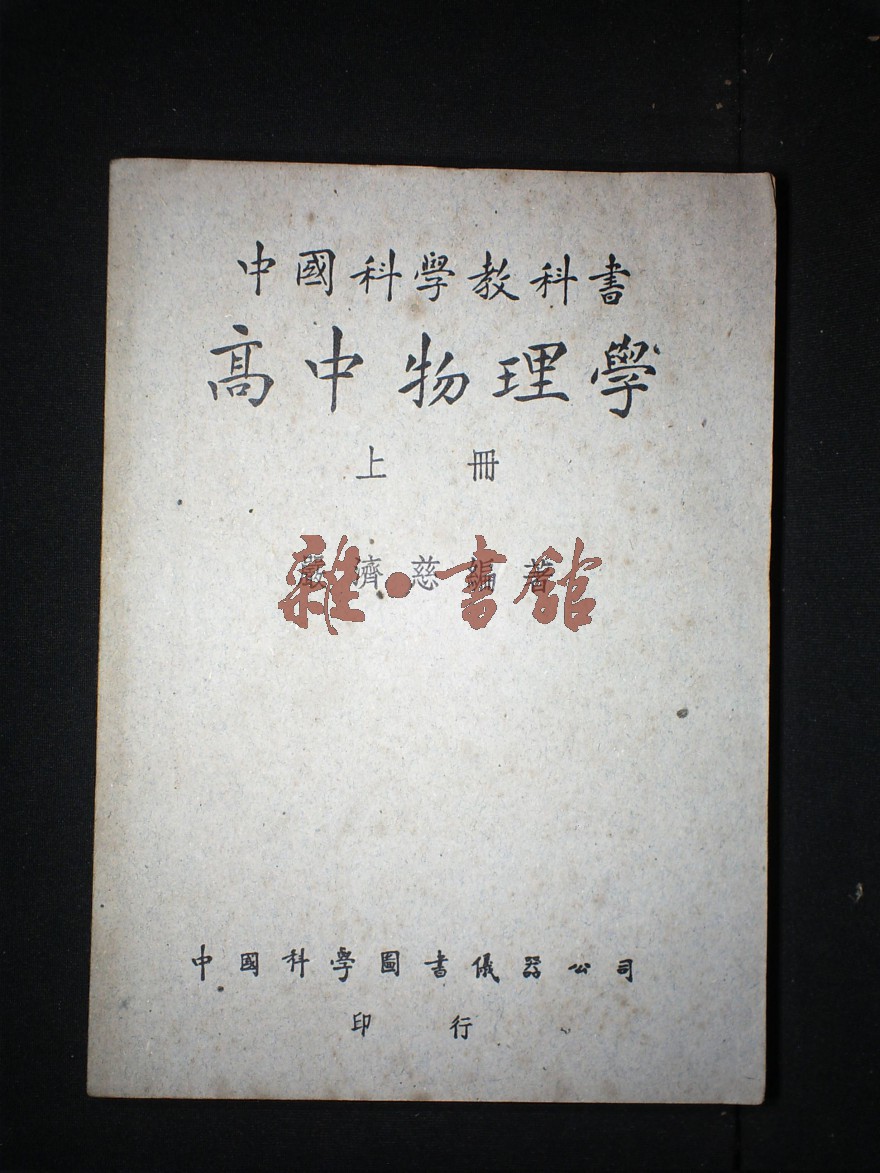 中國科學教科書
高中物理學
上冊
嚴濟慈編著
雜·書館
中國科學圖書儀器公司
印行